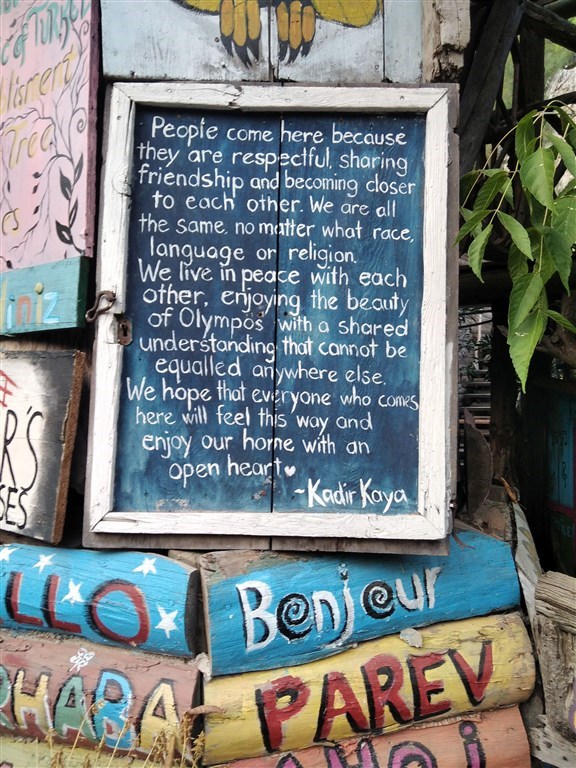 of TURKEY
llisment
Tree
iniz
People come here because
they are respectful, sharing
friendship and becoming closer
to each other. We are all
the same, no matter what race,
language or religion.
We live in peace with each
other, enjoying the beauty
of Olympos with a shared
understanding that cannot be
equalled anywhere else.
We hope that everyone who comes
here will feel this way and
enjoy our home with an
open heart
~Kadir Kaya
R'S
SES
LLO
Bonjour
RHABA
PAREV
AHOj